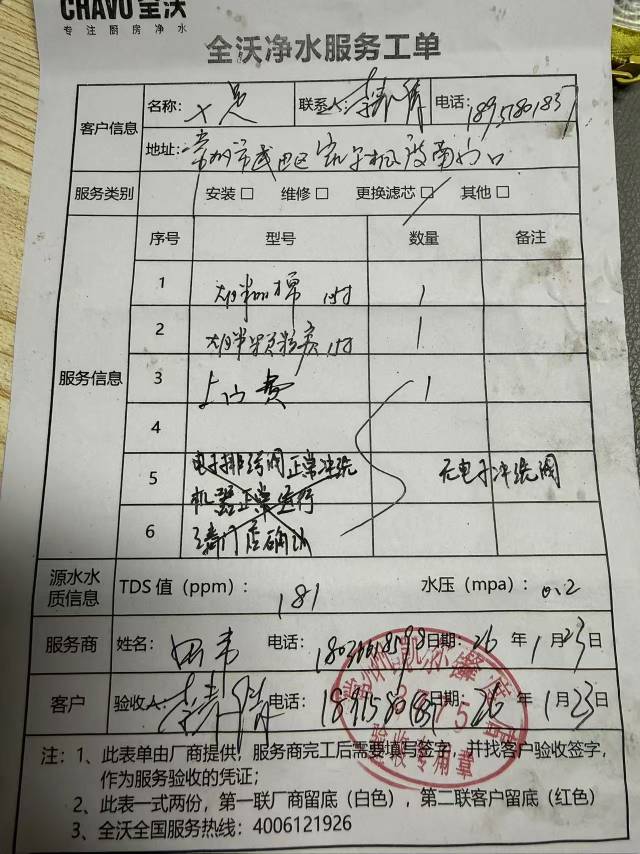 CHAVO 全沃
专注厨房净水
全沃净水服务工单
客户信息
名称：大员 联系人：李 倩 电话：
地址：常州市武进区 南门口
服务类别 安装□ 维修□ 更换滤芯□ 其他□
服务信息
序号 型号 数量 备注
1 棉 1对 1
2 1对 1
3 上门费 1
4
5 电子排污阀正常冲洗 无电子冲洗阀
机器正常运行
6 请门店确认
源水水质信息 TDS 值（ppm）：181 水压（mpa）：0.2
服务商 姓名：田韦 电话： 日期：26 年 1 月 23 日
客户 验收人： 电话： 日期：26 年 1 月 23 日
验收专用章
注：1、此表单由厂商提供，服务商完工后需要填写签字，并找客户验收签字，
作为服务验收的凭证；
2、此表一式两份，第一联厂商留底（白色），第二联客户留底（红色）
3、全沃全国服务热线：4006121926